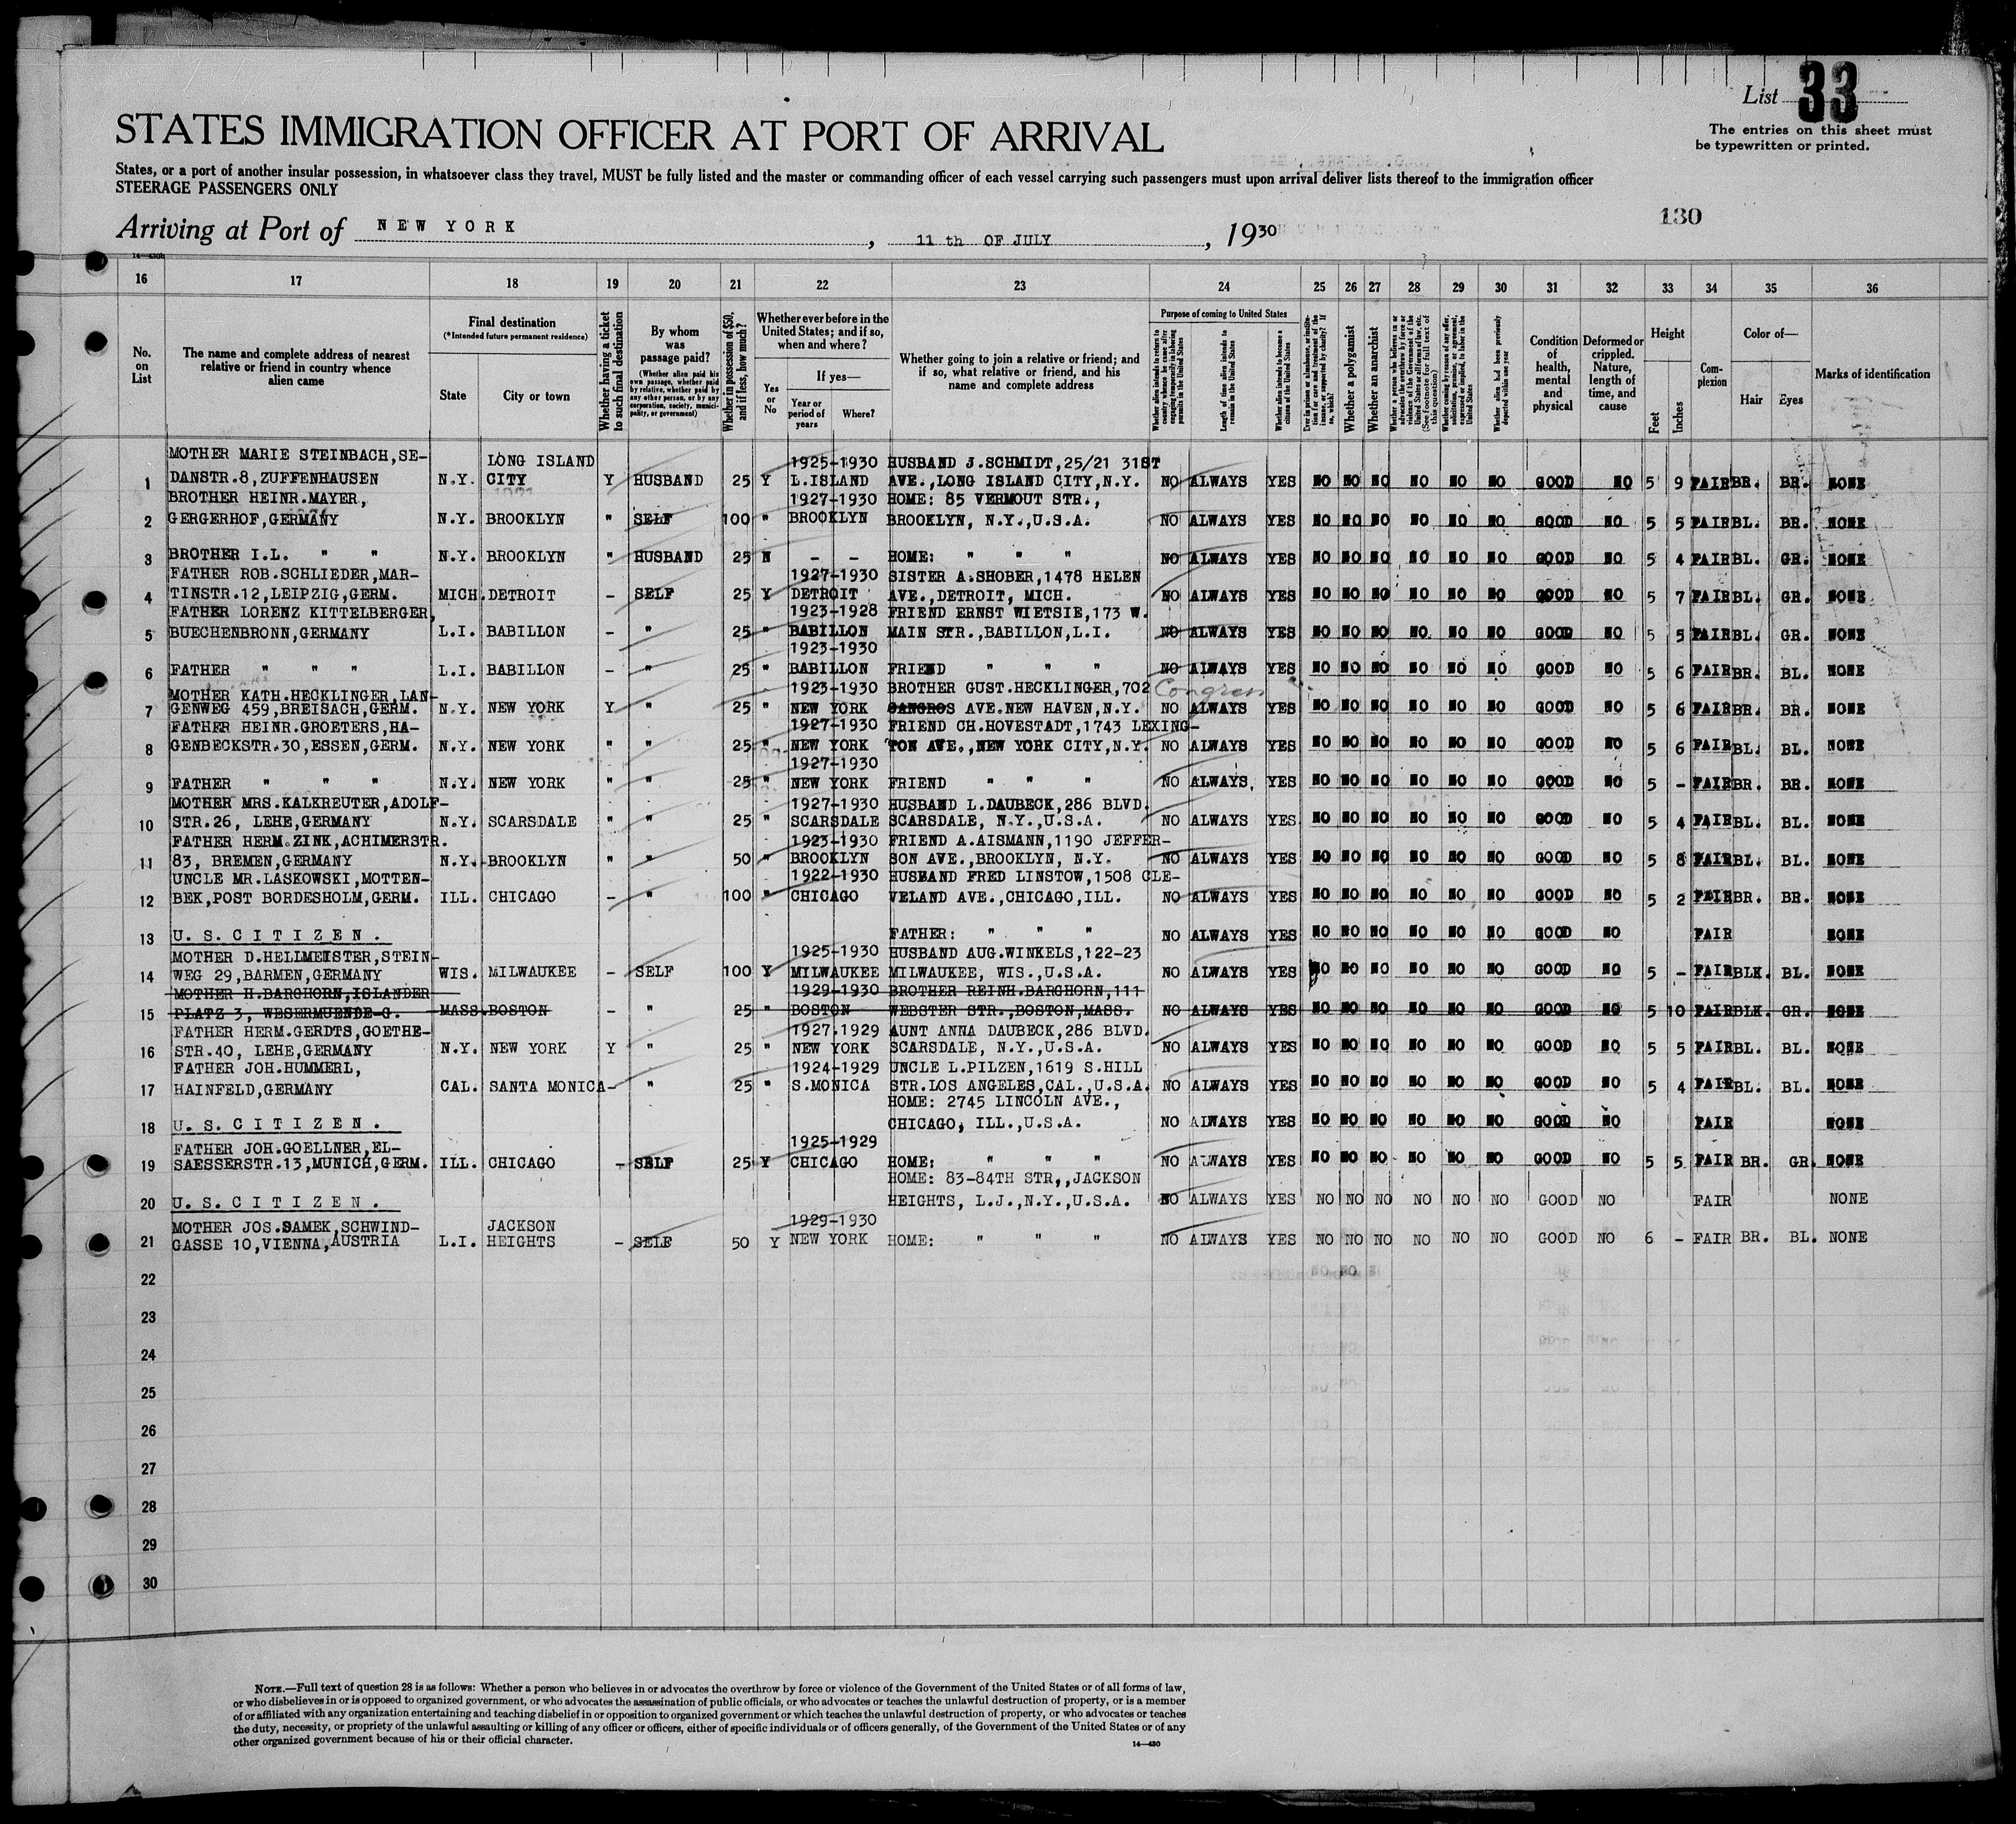 List 33
The entries on this sheet must
be typewritten or printed.
STATES IMMIGRATION OFFICER AT PORT OF ARRIVAL
States, or a port of another insular possession, in whatsoever class they travel, MUST be fully listed and the master or commanding officer of each vessel carrying such passengers must upon arrival deliver lists thereof to the immigration officer
STEERAGE PASSENGERS ONLY
130
Arriving at Port of NEW YORK , 11 th OF JULY , 1930
16 17 18 19 20 21 22 23 24 25 26 27 28 29 30 31 32 33 34 35 36
No. on List
The name and complete address of nearest relative or friend in country whence alien came
Final destination
(*Intended future permanent residence)
State
City or town
Whether having a ticket to such final destination
By whom was passage paid?
(Whether alien paid his own passage, whether paid by relative, whether paid by any other person, or by any corporation, society, municipality, or government)
Whether in possession of $50, and if less, how much?
Whether ever before in the United States; and if so, when and where?
Yes or No
If yes—
Year or period of years
Where?
Whether going to join a relative or friend; and if so, what relative or friend, and his name and complete address
Purpose of coming to United States
Whether alien intends to return to country whence he came after engaging temporarily in laboring pursuits in the United States
Length of time alien intends to remain in the United States
Whether alien intends to become a citizen of the United States
Whether a polygamist
Whether an anarchist
Condition of health, mental and physical
Deformed or crippled. Nature, length of time, and cause
Height
Feet
Inches
Complexion
Color of—
Hair
Eyes
Marks of identification
MOTHER MARIE STEINBACH,SE- LONG ISLAND 1925-1930 HUSBAND J.SCHMIDT,25/21 31ST
1 DANSTR.8,ZUFFENHAUSEN N.Y. CITY Y HUSBAND 25 Y L.ISLAND AVE.,LONG ISLAND CITY,N.Y. NO ALWAYS YES NO NO NO NO NO NO GOOD NO 5 9 FAIR BR. BR. NONE
BROTHER HEINR.MAYER, 1927-1930 HOME: 85 VERMOUT STR.,
2 GERGERHOF,GERMANY N.Y. BROOKLYN " SELF 100 " BROOKLYN BROOKLYN, N.Y.,U.S.A. NO ALWAYS YES NO NO NO NO NO NO GOOD NO 5 5 FAIR BL. BR. NONE
3 BROTHER I.L. " " N.Y. BROOKLYN " HUSBAND 25 N - - HOME: " " " NO ALWAYS YES NO NO NO NO NO NO GOOD NO 5 4 FAIR BL. GR. NONE
FATHER ROB.SCHLIEDER,MAR- 1927-1930 SISTER A.SHOBER,1478 HELEN
4 TINSTR.12,LEIPZIG,GERM. MICH. DETROIT - SELF 25 Y DETROIT AVE.,DETROIT, MICH. NO ALWAYS YES NO NO NO NO NO NO GOOD NO 5 7 FAIR BL. GR. NONE
FATHER LORENZ KITTELBERGER, 1923-1928 FRIEND ERNST WIETSIE,173 W.
5 BUECHENBRONN,GERMANY L.I. BABILLON - " 25 " BABILLON MAIN STR.,BABILLON,L.I. NO ALWAYS YES NO NO NO NO NO NO GOOD NO 5 5 FAIR BL. GR. NONE
1923-1930
6 FATHER " " " L.I. BABILLON - " 25 " BABILLON FRIEND " " " NO ALWAYS YES NO NO NO NO NO NO GOOD NO 5 6 FAIR BR. BL. NONE
MOTHER KATH.HECKLINGER,LAN- 1923-1930 BROTHER GUST.HECKLINGER,702 Congress
7 GENWEG 459,BREISACH,GERM. N.Y. NEW YORK Y " 25 " NEW YORK SANGROS AVE.NEW HAVEN,N.Y. NO ALWAYS YES NO NO NO NO NO NO GOOD NO 5 6 FAIR BR. BR. NONE
FATHER HEINR.GROETERS,HA- 1927-1930 FRIEND CH.HOVESTADT,1743 LEXING-
8 GENBECKSTR.30,ESSEN,GERM. N.Y. NEW YORK " " 25 " NEW YORK TON AVE.,NEW YORK CITY,N.Y. NO ALWAYS YES NO NO NO NO NO NO GOOD NO 5 6 FAIR BL. BL. NONE
1927-1930
9 FATHER " " " N.Y. NEW YORK " " 25 " NEW YORK FRIEND " " " NO ALWAYS. YES NO NO NO NO NO NO GOOD NO 5 - FAIR BR. BR. NONE
MOTHER MRS.KALKREUTER,ADOLF- 1927-1930 HUSBAND L.DAUBECK,286 BLVD.
10 STR.26, LEHE,GERMANY N.Y. SCARSDALE " " 25 " SCARSDALE SCARSDALE, N.Y.,U.S.A. NO ALWAYS YES NO NO NO NO NO NO GOOD NO 5 4 FAIR BL. BL. NONE
FATHER HERM.ZINK,ACHIMERSTR. 1923-1930 FRIEND A.AISMANN,1190 JEFFER-
11 83, BREMEN,GERMANY N.Y. BROOKLYN " " 50 " BROOKLYN SON AVE.,BROOKLYN, N.Y. NO ALWAYS YES NO NO NO NO NO NO GOOD NO 5 8 FAIR BL. BL. NONE
UNCLE MR.LASKOWSKI,MOTTEN- 1922-1930 HUSBAND FRED LINSTOW,1508 CLE-
12 BEK,POST BORDESHOLM,GERM. ILL. CHICAGO - " 100 " CHICAGO VELAND AVE.,CHICAGO,ILL. NO ALWAYS YES NO NO NO NO NO NO GOOD NO 5 2 FAIR BR. BR. NONE
13 U. S. C I T I Z E N . FATHER: " " " NO ALWAYS YES NO NO NO NO NO NO GOOD NO FAIR NONE
MOTHER D.HELLMEISTER,STEIN- 1925-1930 HUSBAND AUG.WINKELS,122-23
14 WEG 29,BARMEN,GERMANY WIS. MILWAUKEE - SELF 100 Y MILWAUKEE MILWAUKEE, WIS.,U.S.A. NO ALWAYS YES NO NO NO NO NO NO GOOD NO 5 - FAIR BLK. BL. NONE
MOTHER H.BARGHORN,ISLANDER- 1929-1930 BROTHER REINH.BARGHORN,111
15 PLATZ 3, WESERMUENDE-G. MASS. BOSTON - " 25 " BOSTON WEBSTER STR.,BOSTON,MASS. NO ALWAYS YES NO NO NO NO NO NO GOOD NO 5 10 FAIR BLK. GR. NONE
FATHER HERM.GERDTS,GOETHE- 1927.1929 AUNT ANNA DAUBECK,286 BLVD.
16 STR.40, LEHE,GERMANY N.Y. NEW YORK Y " 25 " NEW YORK SCARSDALE, N.Y.,U.S.A. NO ALWAYS YES NO NO NO NO NO NO GOOD NO 5 5 FAIR BL. BL. NONE
FATHER JOH.HUMMERL, 1924-1929 UNCLE L.PILZEN,1619 S.HILL
17 HAINFELD,GERMANY CAL. SANTA MONICA - " 25 " S.MONICA STR.LOS ANGELES,CAL.,U.S.A. NO ALWAYS YES NO NO NO NO NO NO GOOD NO 5 4 FAIR BL. BL. NONE
HOME: 2745 LINCOLN AVE.,
18 U. S. C I T I Z E N . CHICAGO, ILL.,U.S.A. NO ALWAYS YES NO NO NO NO NO NO GOOD NO FAIR NONE
FATHER JOH.GOELLNER,EL- 1925-1929
19 SAESSERSTR.13,MUNICH,GERM. ILL. CHICAGO - SELF 25 Y CHICAGO HOME: " " " NO ALWAYS YES NO NO NO NO NO NO GOOD NO 5 5 FAIR BR. GR. NONE
HOME: 83-84TH STR,,JACKSON
20 U. S. C I T I Z E N . HEIGHTS, L.J.,N.Y.,U.S.A. NO ALWAYS YES NO NO NO NO NO NO GOOD NO FAIR NONE
MOTHER JOS.SAMEK,SCHWIND- JACKSON 1929-1930
21 GASSE 10,VIENNA,AUSTRIA L.I. HEIGHTS - SELF 50 Y NEW YORK HOME: " " " NO ALWAYS YES NO NO NO NO NO NO GOOD NO 6 - FAIR BR. BL. NONE
22
23
24
25
26
27
28
29
30
NOTE.—Full text of question 28 is as follows: Whether a person who believes in or advocates the overthrow by force or violence of the Government of the United States or of all forms of law,
or who disbelieves in or is opposed to organized government, or who advocates the assassination of public officials, or who advocates or teaches the unlawful destruction of property, or is a member
of or affiliated with any organization entertaining and teaching disbelief in or opposition to organized government or which teaches the unlawful destruction of property, or who advocates or teaches
the duty, necessity, or propriety of the unlawful assaulting or killing of any officer or officers, either of specific individuals or of officers generally, of the Government of the United States or of any
other organized government because of his or their official character.
14—430